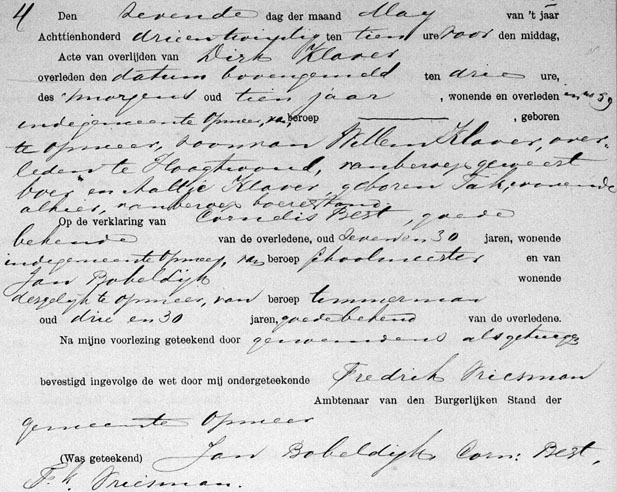 4 Den zevende dag der maand May van 't jaar
Achttienhonderd drieentwintig ten tien ure voor den middag,
Acte van overlijden van Dirk Klaver
overleden den datum bovengemeld ten drie ure,
des 'smorgens oud tien jaar , wonende en overleden in no 59
indegemeente Opmeer, van beroep , geboren
te Opmeer, zoon van Willem Klaver, over-
leden te Hoogtwoud, van beroep geweest
boer en Aaltje Klaver, geboren Tak, wonende
alhier, van beroep boerestand.
Op de verklaring van Cornelis Best, goede
bekende van de overledene, oud zeven en 30 jaren, wonende
indegemeente Opmeer, van beroep schoolmeester en van
Jan Bobeldijk wonende
dergelijk te Opmeer, van beroep timmerman
oud drie en 30 jaren, goede bekend van de overledene.
Na mijne voorlezing geteekend door genoemdens als getuige
bevestigd ingevolge de wet door mij ondergeteekende Fredrik Vriesman
Ambtenaar van den Burgerlijken Stand der
gemeente Opmeer
(Was geteekend) Jan Bobeldijk Corn: Best,
Fk. Vriesman.